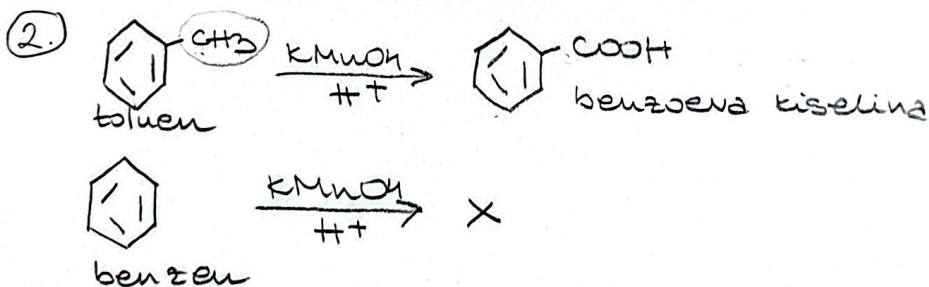 2.
CH3 KMnO4 COOH
H+
toluen benzoeva kiselina
KMnO4 X
H+
benzen